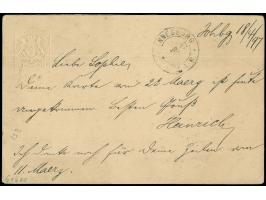 Jhbg 18/4/97
Liebe Sophie,
Deine Karte vom 22 Maerz ist hier
angekommen. Besten Gruss
Heinrich
Ich danke noch für Deine Zeilen vom
11. Maerz.